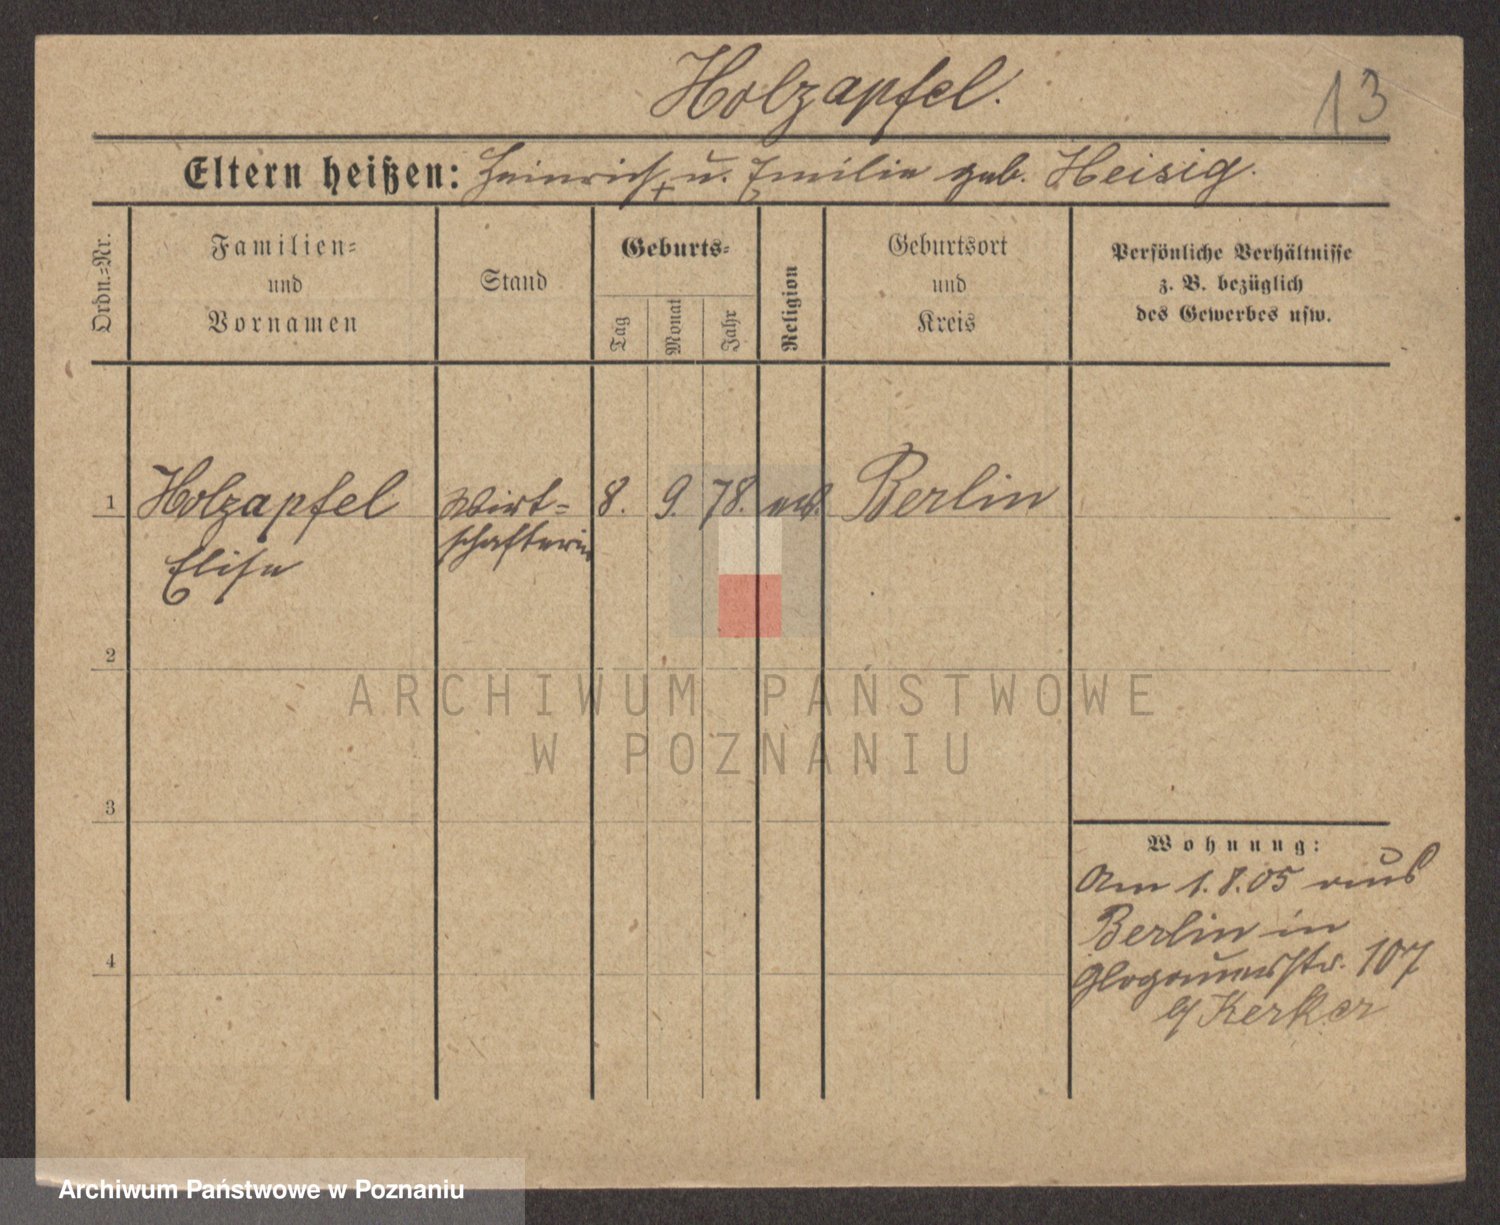 Holzapfel.
13
Eltern heißen: Heinrich + u. Emilie geb. Heisig.
Ordn.=Nr.
Familien=
und
Vornamen
Stand
Geburts=
Tag
Monat
Jahr
Religion
Geburtsort
und
Kreis
Persönliche Verhältnisse
z. B. bezüglich
des Gewerbes usw.
1 Holzapfel Wirt= 8. 9. 78. ev. Berlin
Elise schafterin
2
ARCHIWUM PAŃSTWOWE
W POZNANIU
3
Wohnung:
Am 1.8.05 aus
Berlin in
4
Glogauerstr. 107
b/ Kerker
Archiwum Państwowe w Poznaniu